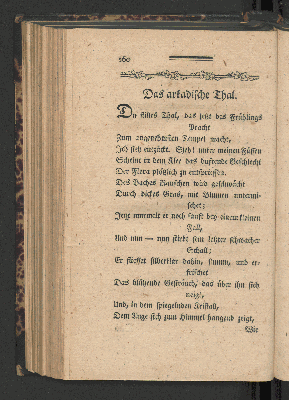 260
Das arkadische Thal.
Du stilles Thal, das jetzt des Frühlings
Pracht
Zum angenehmsten Tempel macht,
Ich seh entzückt. Sieh! unter meinen Füssen
Scheint in dem Klee das duftende Geschlecht
Der Flora plötzlich zu entspriessen.
Des Baches Rauschen wird geschwächt
Durch dickes Gras, mit Blumen untermi-
schet;
Jetzt murmelt er noch sanft bey einem kleinen
Fall,
Und nun — nun stirbt sein letzter schwacher
Schall;
Er fliesset silberklar dahin, stumm, und er-
frischet
Das blühende Gesträuch, das über ihn sich
neigt,
Und, in dem spiegelnden Kristall,
Dem Auge sich zum Himmel hangend zeigt,
Wir